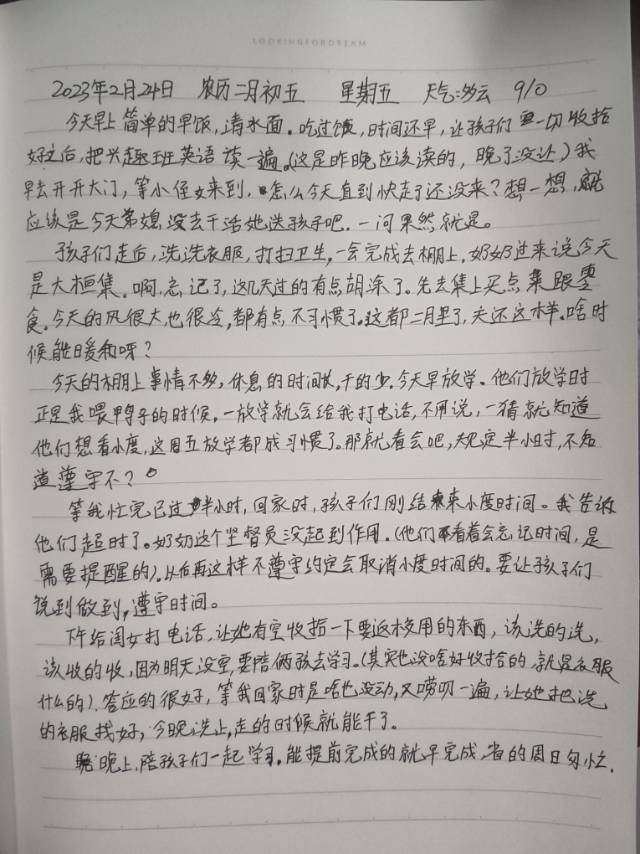 LOOKINGFORDREAM
2023年2月24日 农历二月初五 星期五 天气:多云 9/0
今天早上简单的早饭,清水面。吃过饭,时间还早,让孩子们一切收拾
好之后,把兴趣班英语读一遍。(这是昨晚应该读的,晚了没让)我
早去开开大门,等小侄女来到,怎么今天直到快走了还没来?想一想,就
应该是今天弟媳没去干活她送孩子吧。一问果然就是。
孩子们走后,洗洗衣服,打扫卫生,一会完成去棚上,奶奶过来说今天
是大桓集。啊,忘记了,这几天过的有点胡涂了。先去集上买点菜跟零
食。今天的风很大也很冷,都有点不习惯了。这都二月里了,天还这样。啥时
候能暖和呀?
今天的棚上事情不多,休息的时间长,干的少。今天早放学。他们放学时
正是我喂鸭子的时候。一放学就会给我打电话,不用说,一猜就知道
他们想看小度,这周五放学都成习惯了。那就看会吧,规定半小时,不知
道遵守不?
等我忙完已过半小时,回家时,孩子们刚结束小度时间。我告诉
他们超时了。奶奶这个监督员没起到作用。(他们看着会忘记时间,是
需要提醒的)。以后再这样不遵守约定会取消小度时间的。要让孩子们
说到做到,遵守时间。
下午给闺女打电话,让她有空收拾一下要返校用的东西,该洗的洗,
该收的收,因为明天没空,要陪俩孩去学习。(其实也没啥好收拾的,就是衣服
什么的)。答应的很好,等我回家时是啥也没动,又唠叨一遍,让她把洗
的衣服找好,今晚洗上,走的时候就能干了。
晚上,陪孩子们一起学习。能提前完成的就早完成,省的周日匆忙.